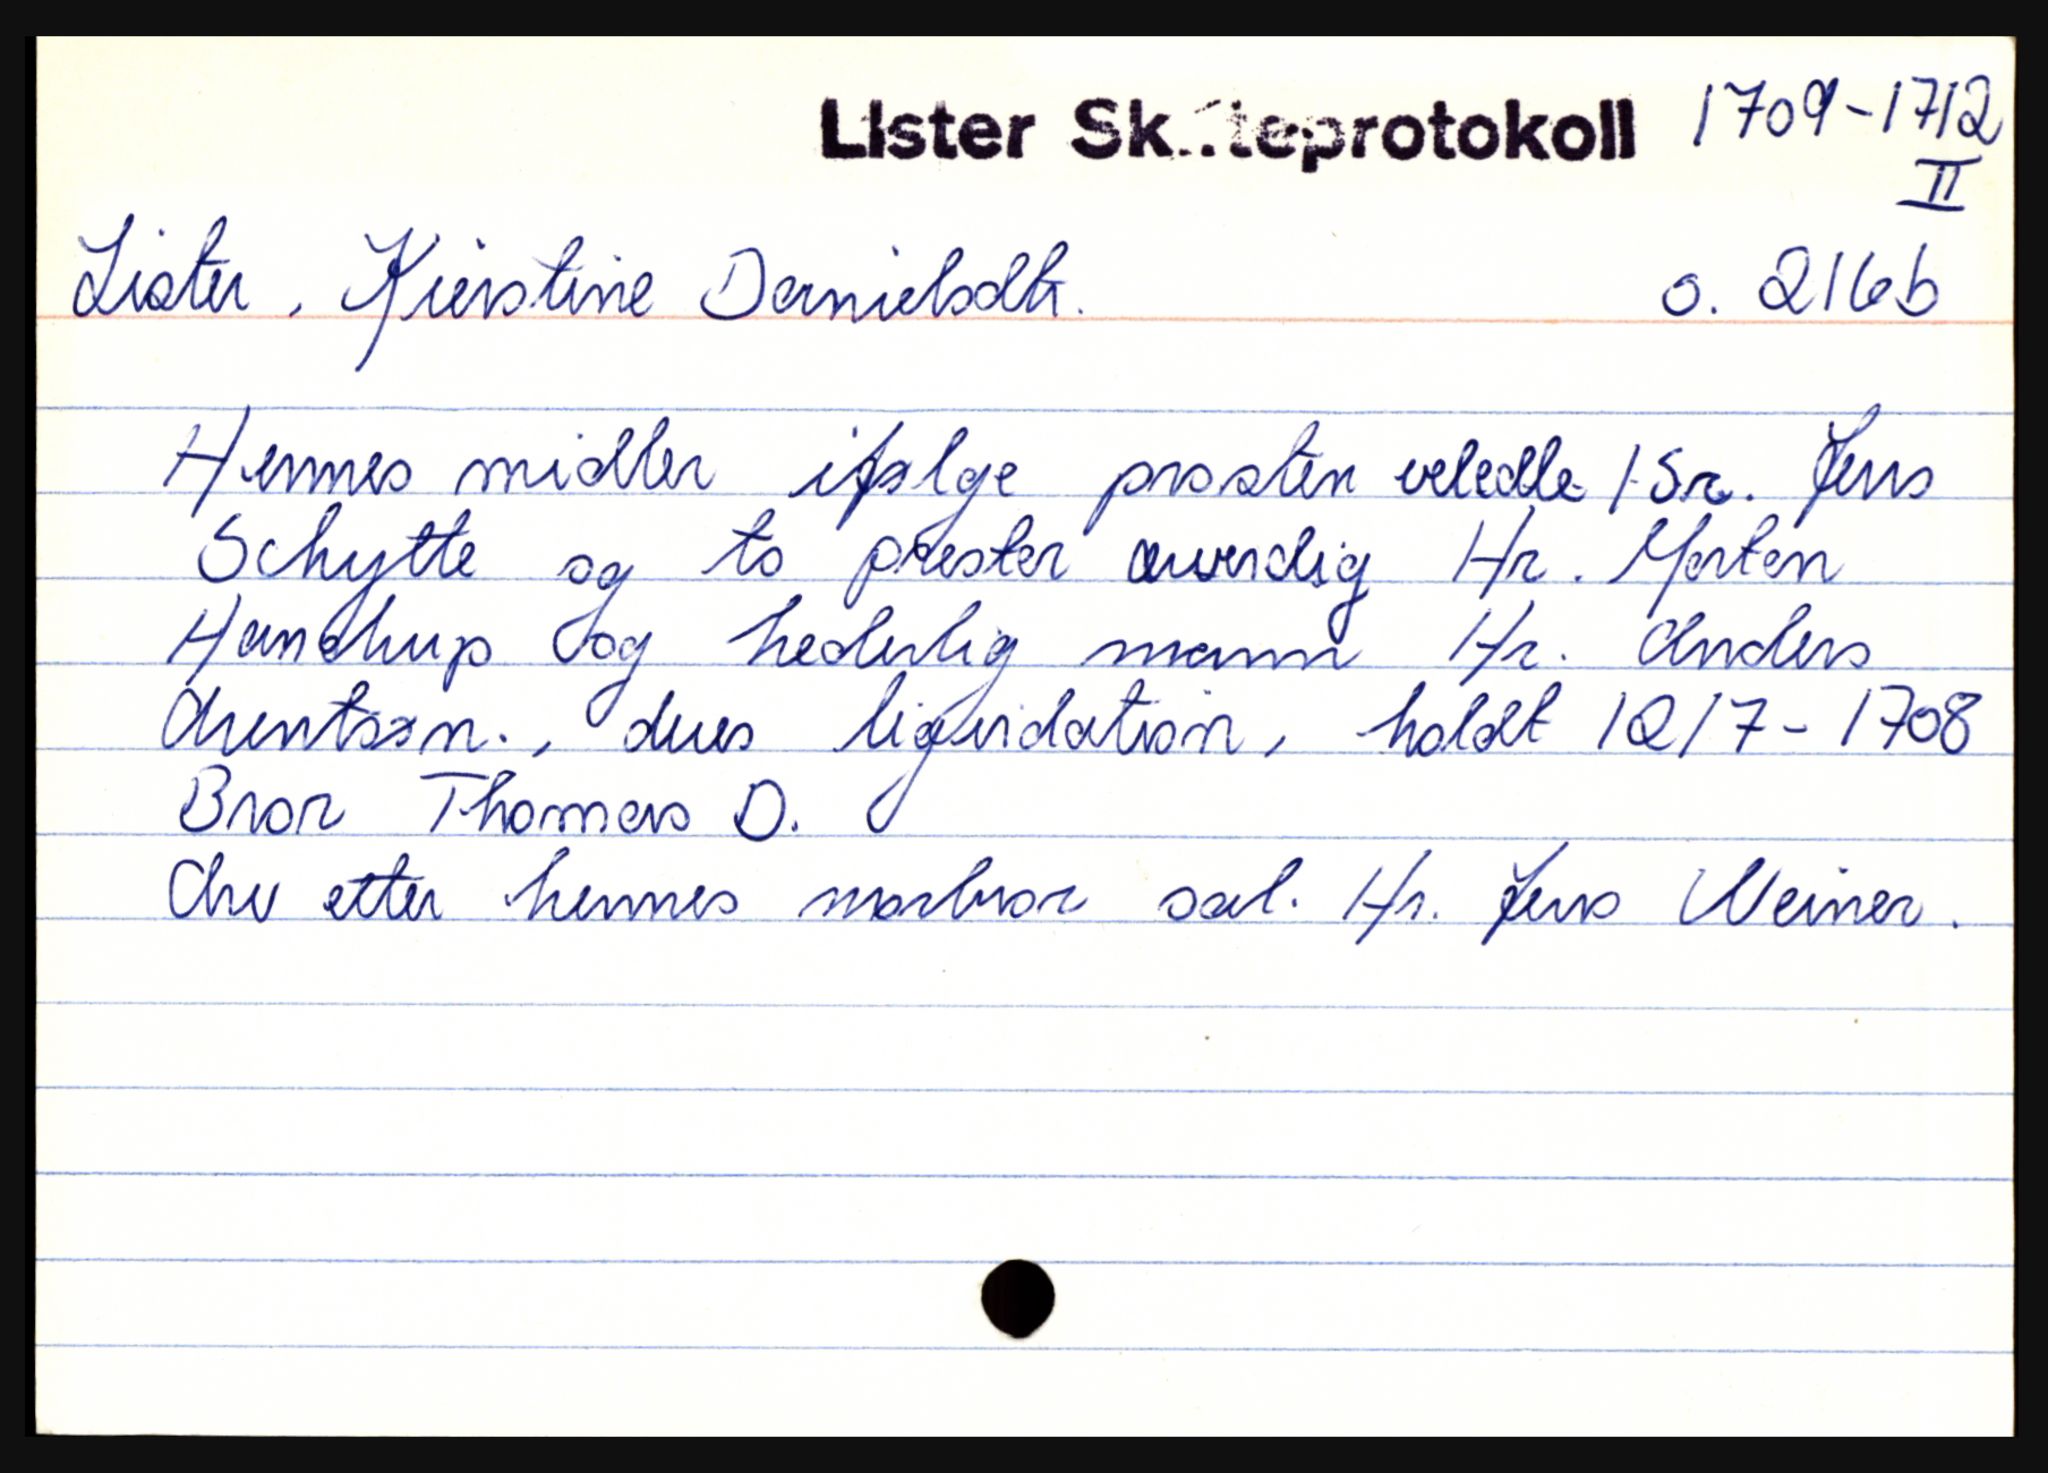 Lister Skifteprotokoll 1709-1712
II
Lister, Kierstine Danielsdtr. o. 216b
Hennes midler ifølge prosten veledle Sr. Jens
Schytte og to prester ærverdig Hr. Morten
Handrup og hederlig mann Hr. Anders
Arentssøn., deres liqvidation, holdt 12/7-1708
Bror Thomas D.
Arv etter hennes morbror sal. Hr. Jens Weiner.